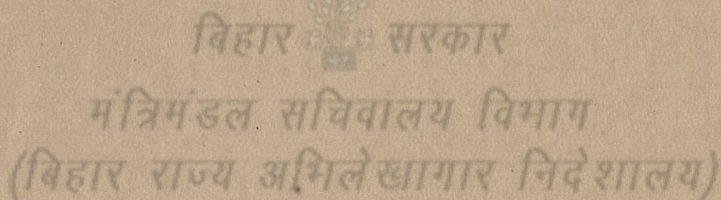 बिहार सरकार
मंत्रिमंडल सचिवालय विभाग
(बिहार राज्य अभिलेखागार निदेशालय)